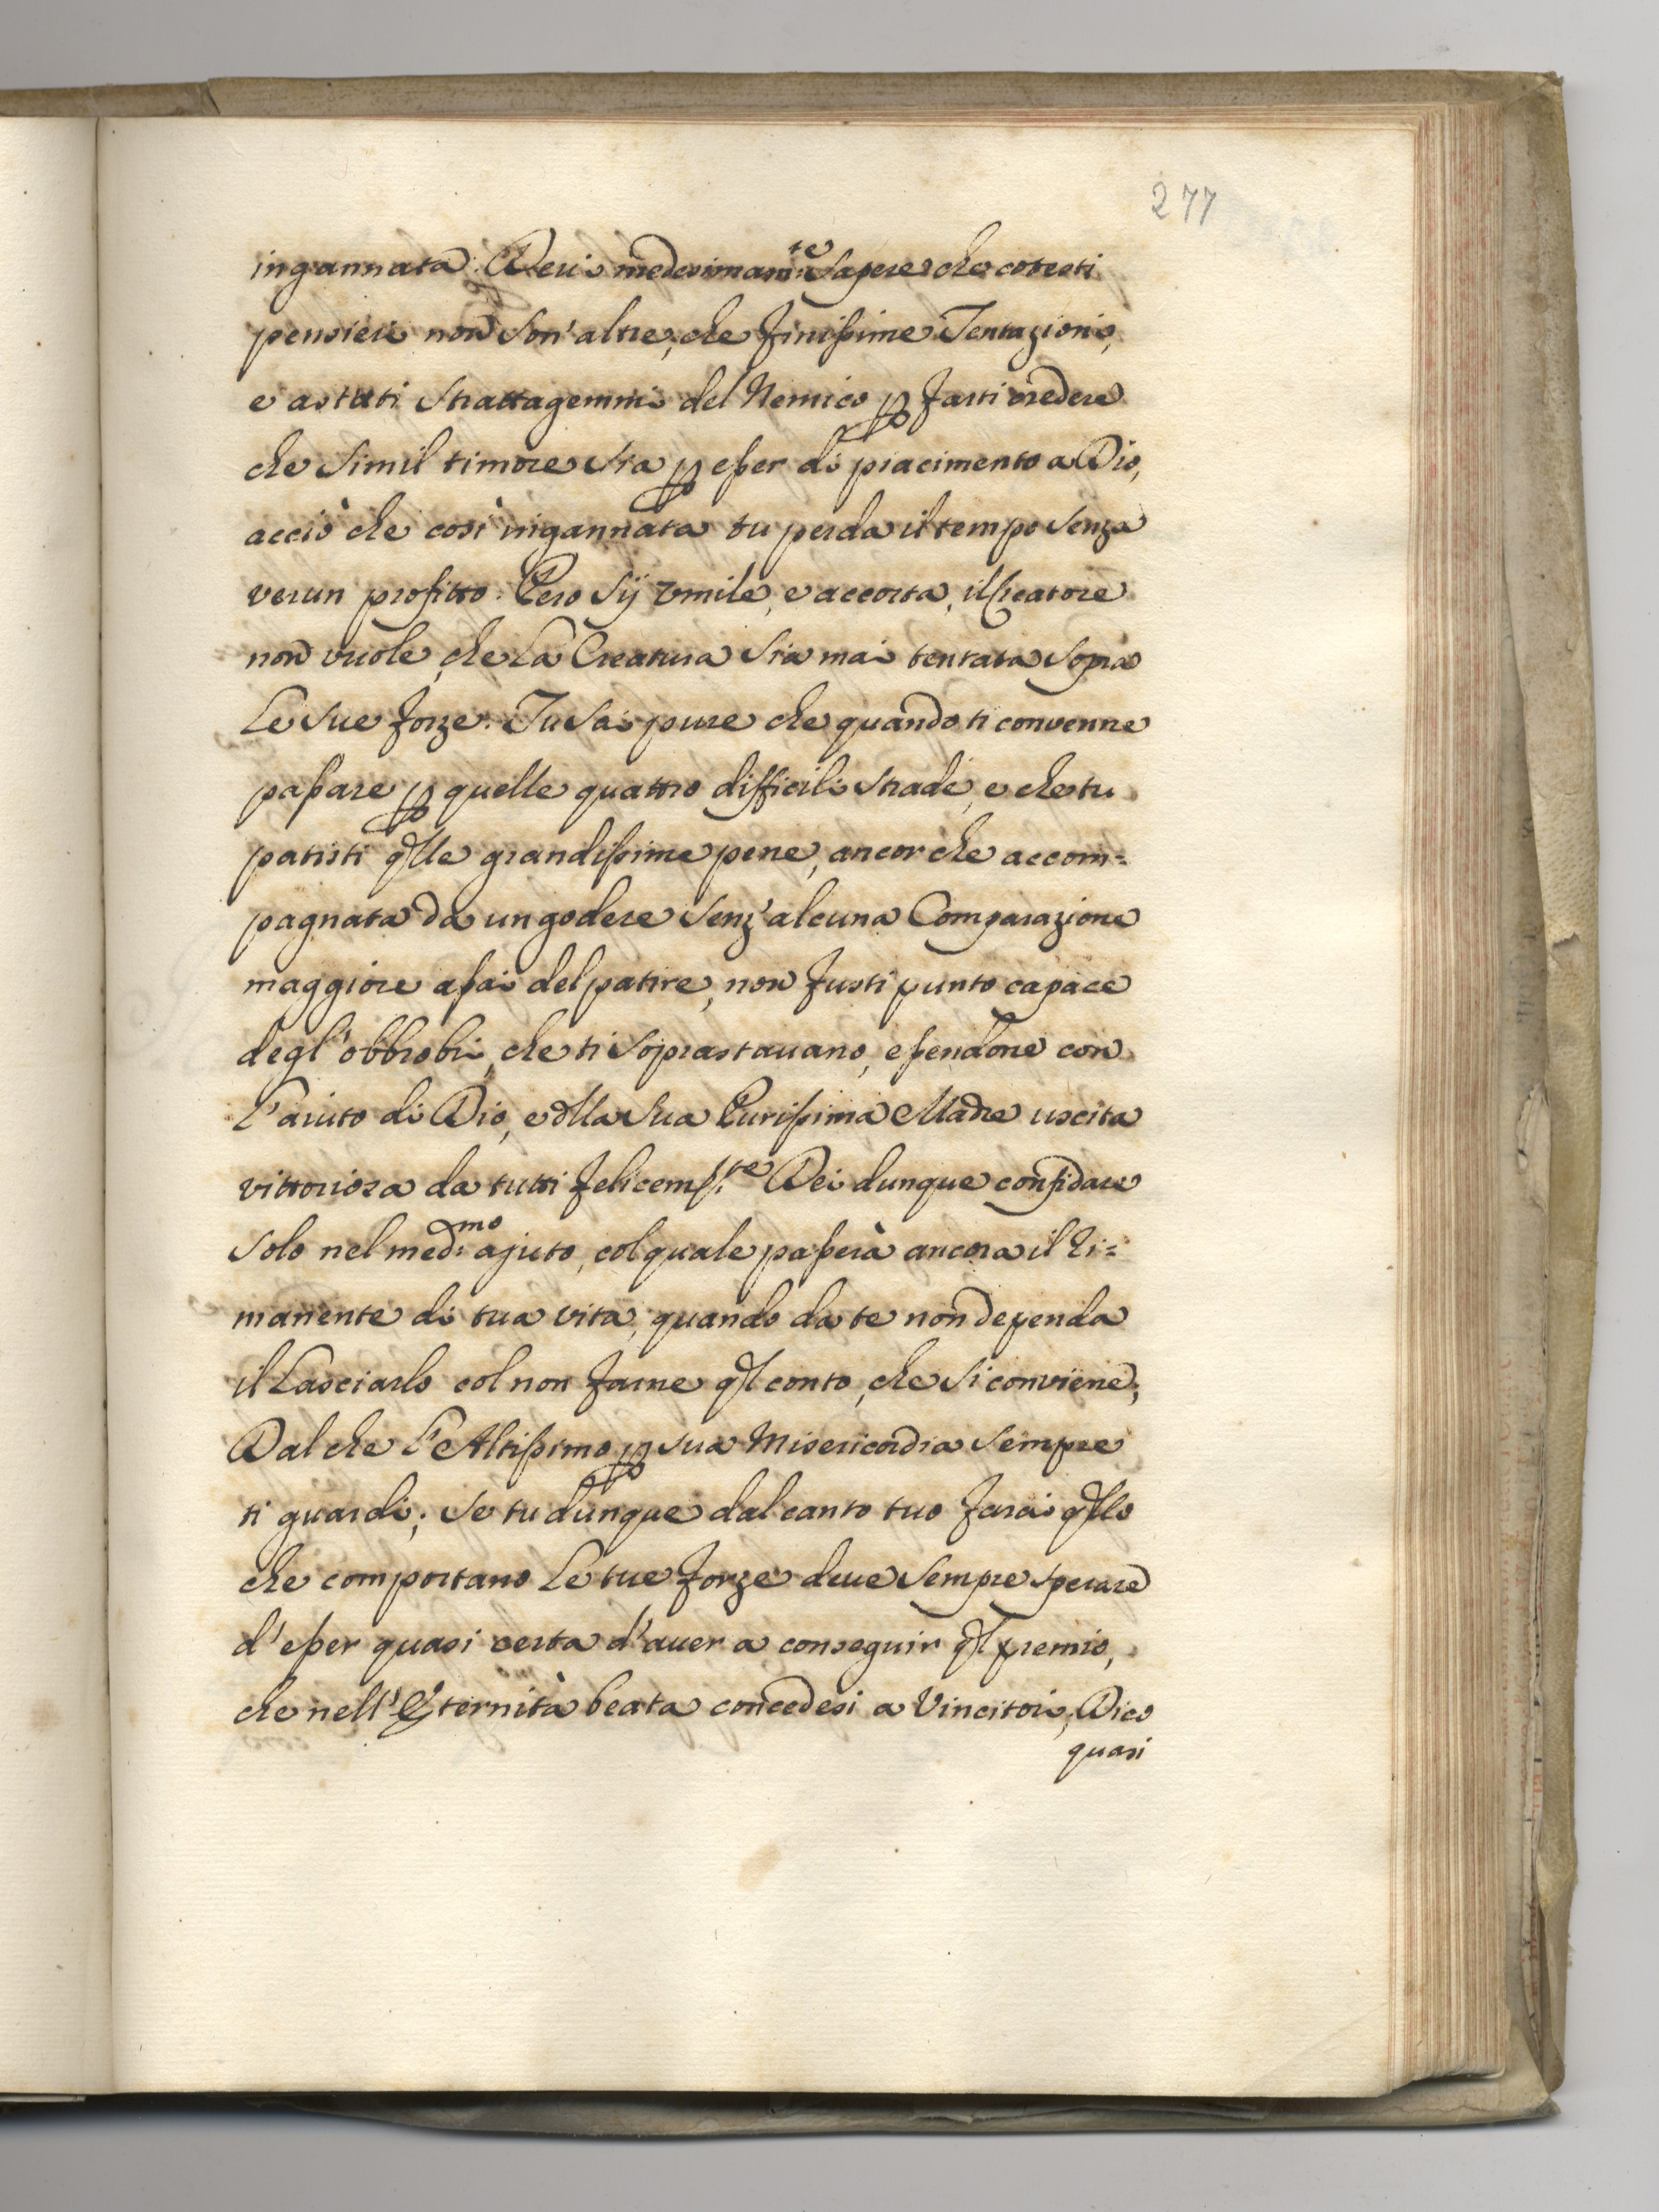 277
ingannata. Deui medesimam:te Sapere che cotesti
pensieri non Son' altre, che finissime Tentazioni,
e astuti Strattagemmi del Nemico p farti credere
che Simil timore Sia p esser di piacimento a Dio,
acciò che così ingannata tu perda il tempo Senza
verun profitto. Pero Sij vmile, e accorta, il Creatore
non vuole, che La Creatura Sia mai tentata Sopra
Le Sue forze. Tu Sai pure che quando ti convenne
passare p quelle quattro difficili Strade, e che tu
patisti qlle grandissime pene, ancor che accom=
pagnata da un godere Senz' alcuna Comparazione
maggiore assai del patire, non fusti punto capace
degl' obbrobri, che ti Soprastauano, essendone con
L'aiuto di Dio, e dlla Sua Purissima Madre uscita
vittoriosa da tutti felicem:te Dei dunque confidare
Solo nel med:mo ajuto, col quale passerà ancora il ri=
manente di tua vita, quando da te non dependa
il Lasciarlo col non farne ql conto, che Si conviene;
Dal che L'Altissimo p sua Misericordia Sempre
ti guardi; Se tu dunque dal canto tuo farai qllo
che comportano Le tue forze deue Sempre Sperare
d'esser quasi certa d'auer a conseguir ql premio,
che nell' Eternità beata concedesi a Vincitori; Dico
quasi